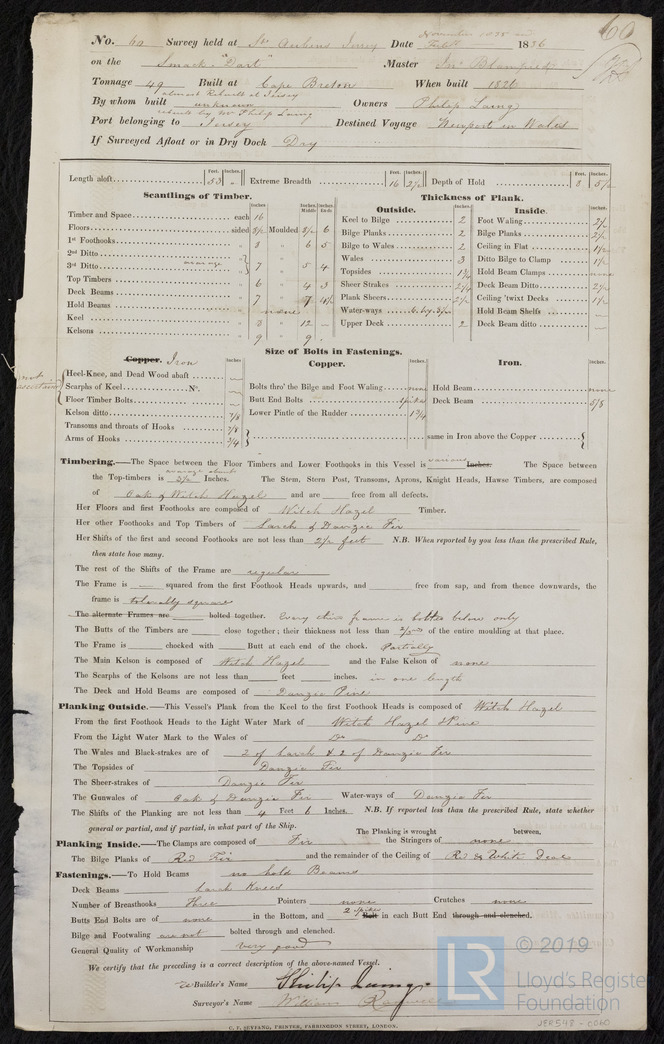 60
November 1835 and
No. 60 Survey held at St. Aubens Jersey Date Feb 1836
on the Smack "Dart" Master Jno. Blampied
Tonnage 49 Built at Cape Breton When built 1826
almost Rebuilt at Jersey
By whom built unknown Owners Philip Laing
rebuilt by Mr Philip Laing
Port belonging to Jersey Destined Voyage Newport in Wales
If Surveyed Afloat or in Dry Dock Dry
Feet. Inches. Feet. Inches. Feet. Inches.
Length aloft 53 " Extreme Breadth 16 2½ Depth of Hold 8
Scantlings of Timber. Thickness of Plank.
Inches. Inches Middle Inches Ends Outside. Inches. Inside. Inches.
Timber and Space each 16 Keel to Bilge 2 Foot Waling
Floors sided 8½ Moulded 8½ 6 Bilge Planks 2 Bilge Planks
1st Foothooks 8 " 6 5 Bilge to Wales 2 Ceiling in Flat
2nd Ditto Wales 3 Ditto Bilge to Clamp
3rd Ditto average 7 " 5 4 Topsides 1¾ Hold Beam Clamps none
Top Timbers 6 " 4 3 Sheer Strakes 2¼ Deck Beam Ditto
Deck Beams 7 " 7 4½ Plank Sheers 2½ Ceiling 'twixt Decks
Hold Beams none Water-ways 6 by 3½ Hold Beam Shelfs
Keel 8 " 12 Upper Deck 2 Deck Beam ditto
Kelsons 9 " 9
Size of Bolts in Fastenings.
Copper. Iron Inches. Copper. Inches. Iron. Inches.
not ascertained
Heel-Knee, and Dead Wood abaft
Scarphs of Keel No. Bolts thro' the Bilge and Foot Waling none Hold Beam none
Floor Timber Bolts Butt End Bolts spikes Deck Beam 5/8
Kelson ditto 7/8 Lower Pintle of the Rudder 1¾
Transoms and throats of Hooks 7/8
Arms of Hooks 3/4 same in Iron above the Copper
Timbering.—The Space between the Floor Timbers and Lower Foothooks in this Vessel is various Inches. The Space between
average about
the Top-timbers is 3½ Inches. The Stem, Stern Post, Transoms, Aprons, Knight Heads, Hawse Timbers, are composed
of Oak & Witch Hazel and are free from all defects.
Her Floors and first Foothooks are composed of Witch Hazel Timber.
Her other Foothooks and Top Timbers of Larch & Danzic Fir
Her Shifts of the first and second Foothooks are not less than 2½ feet N.B. When reported by you less than the prescribed Rule,
then state how many.
The rest of the Shifts of the Frame are regular
The Frame is squared from the first Foothook Heads upwards, and free from sap, and from thence downwards, the
frame is tolerably square
The alternate Frames are bolted together. Every other frame is bolted below only
The Butts of the Timbers are close together; their thickness not less than of the entire moulding at that place.
The Frame is chocked with Butt at each end of the chock. Partially
The Main Kelson is composed of Witch Hazel and the False Kelson of none
The Scarphs of the Kelsons are not less than feet inches. in one length
The Deck and Hold Beams are composed of Danzic Pine
Planking Outside.—This Vessel's Plank from the Keel to the first Foothook Heads is composed of Witch Hazel
From the first Foothook Heads to the Light Water Mark of Witch Hazel & Pine
From the Light Water Mark to the Wales of Do Do
The Wales and Black-strakes are of 2 of Larch & 2 of Danzic Fir
The Topsides of Danzic Fir
The Sheer-strakes of Danzic Fir
The Gunwales of Oak & Danzic Fir Water-ways of Danzic Fir
The Shifts of the Planking are not less than 4 Feet 6 Inches. N.B. If reported less than the prescribed Rule, state whether
general or partial, and if partial, in what part of the Ship. The Planking is wrought between.
Planking Inside.—The Clamps are composed of Fir the Stringers of none
The Bilge Planks of Red Fir and the remainder of the Ceiling of Red & White Deals
Fastenings.—To Hold Beams no hold Beams
Deck Beams Larch Knees
Number of Breasthooks Three Pointers none Crutches none
Butts End Bolts are of none in the Bottom, and 2 spikes Bolt in each Butt End through and clenched.
Bilge and Footwaling are not bolted through and clenched.
General Quality of Workmanship very good
We certify that the preceding is a correct description of the above-named Vessel.
Builder's Name Philip Laing
Surveyor's Name William
C. F. SEYFANG, PRINTER, FARRINGDON STREET, LONDON.
LR
© 2019
Lloyd's Register
Foundation